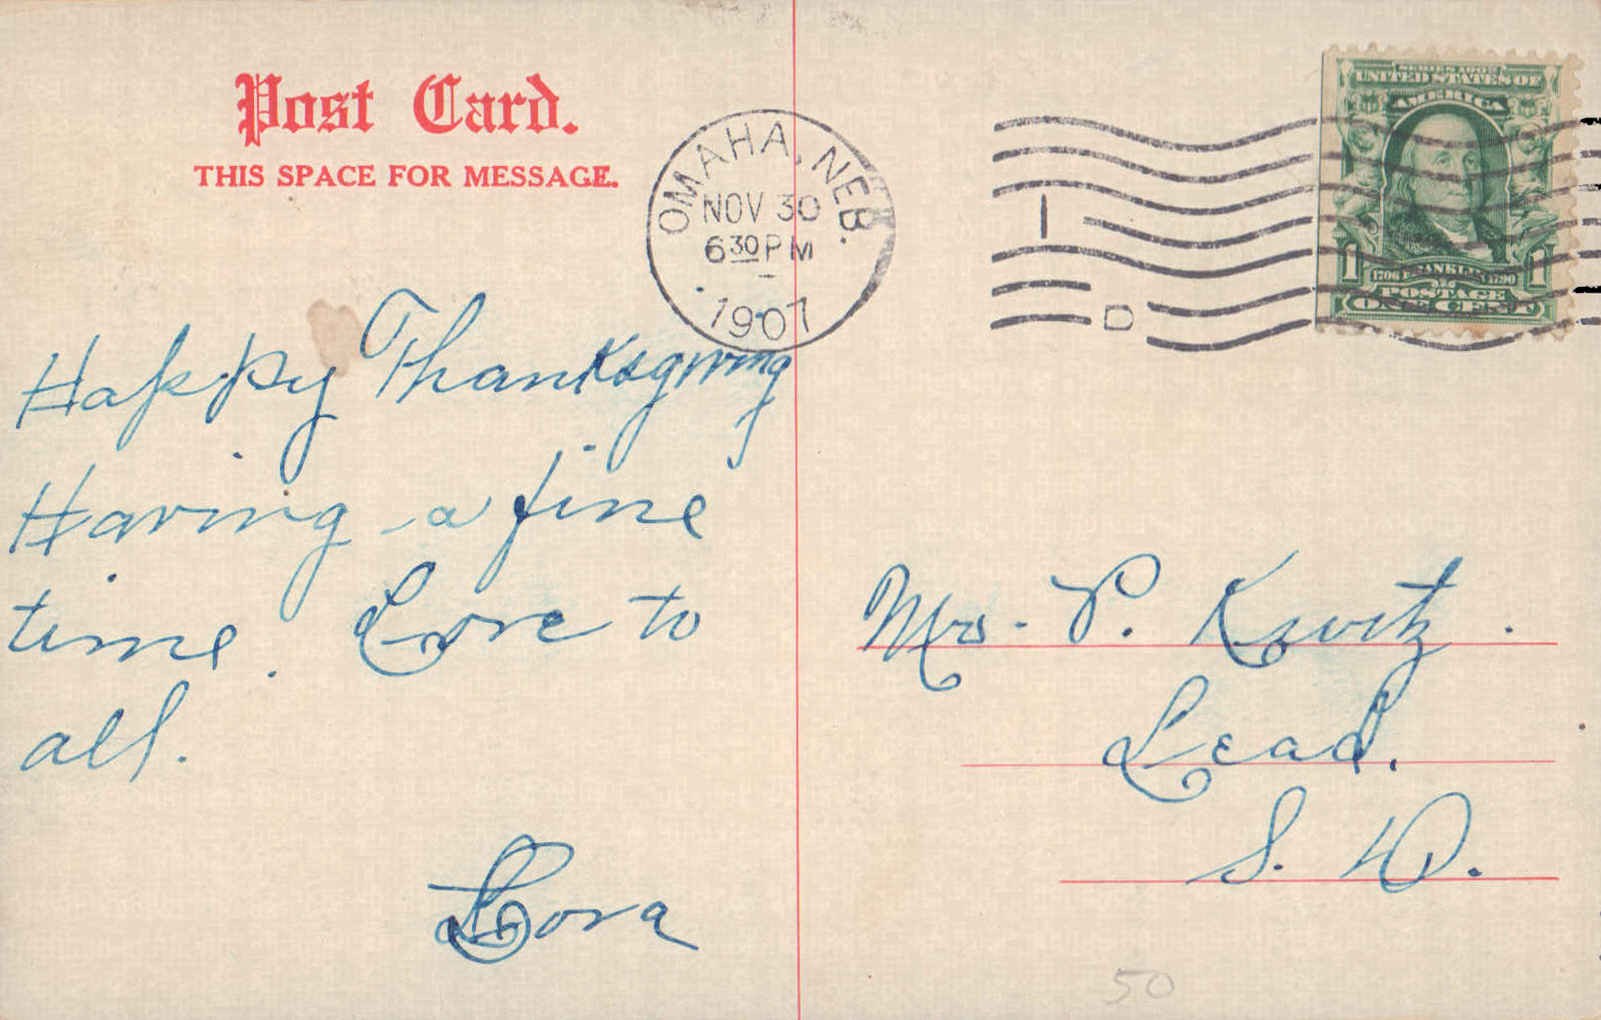 Post Card.
THIS SPACE FOR MESSAGE.
OMAHA, NEB.
NOV 30
630 PM
1907
1
D
SERIES 1902
UNITED STATES OF
AMERICA
1 1
1706 FRANKLIN 1790
POSTAGE
ONE CENT
Happy Thanksgiving
Having a fine
time. Love to
all.
Lora
Mrs. P.
Lead,
S. D.
50